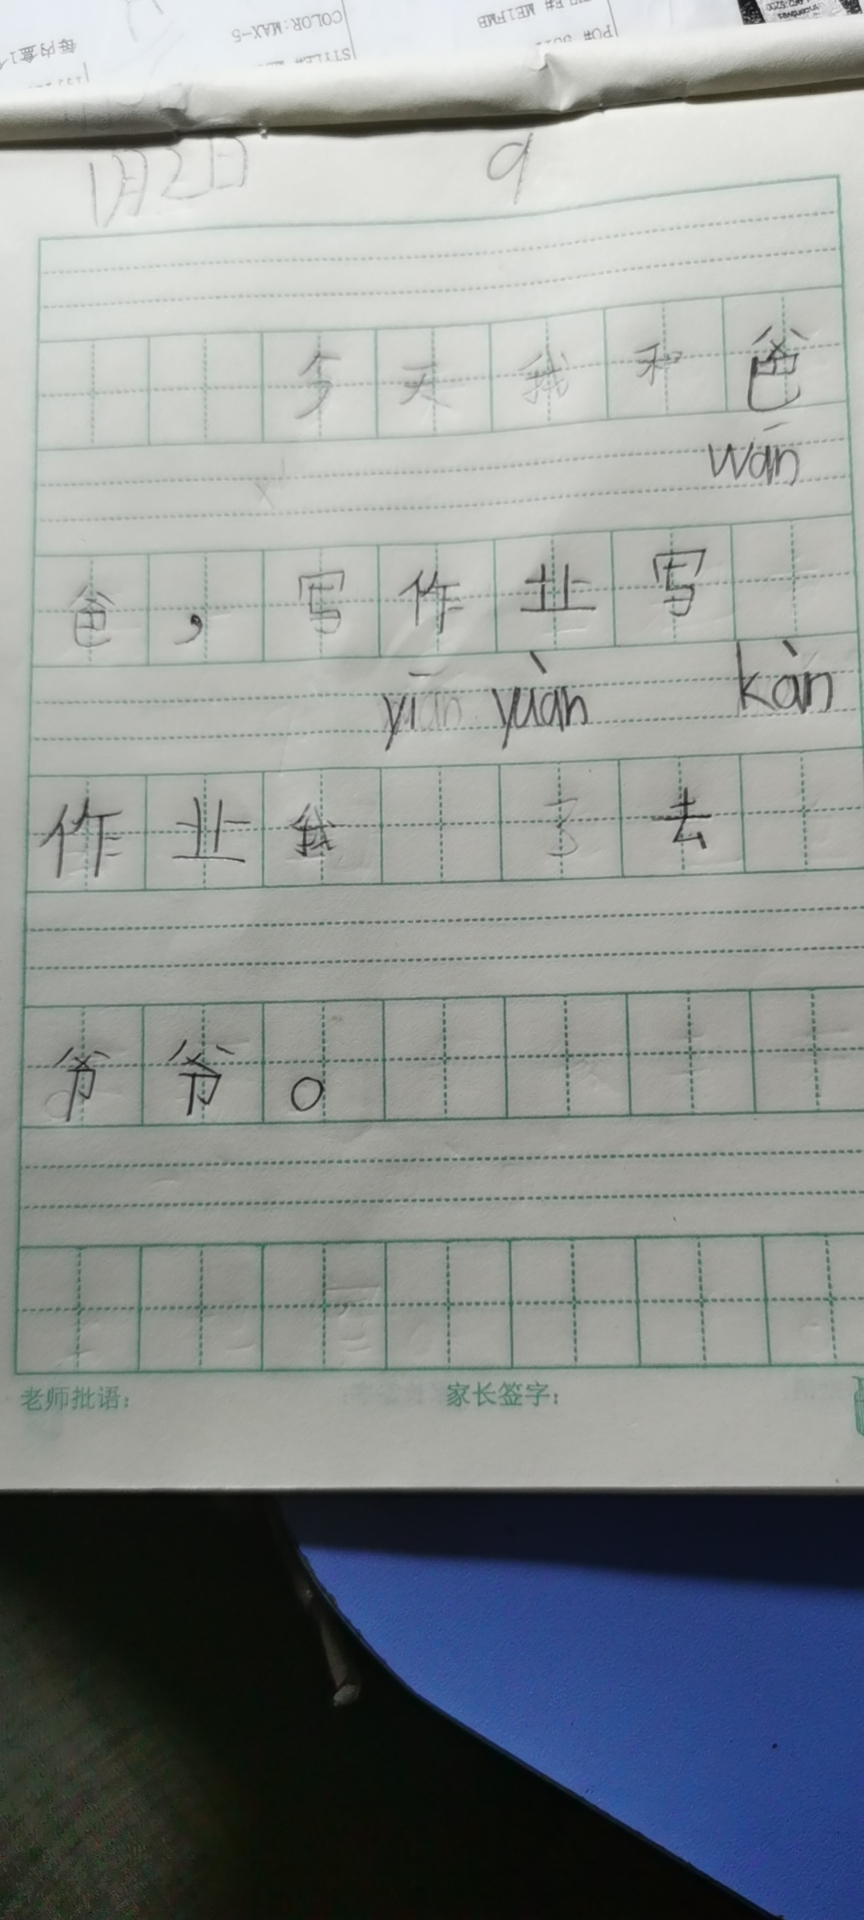 COLOR:MAX-5
1月2日 9
今天我和爸
wán
爸，写作业写
yīān yuàn kàn
作业我 了去
爷爷。
老师批语： 家长签字：